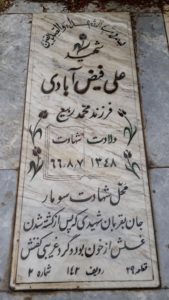 شهید
علی فیض آبادی
فرزند محمد ربیع
ولادت شهادت
۱۳۴۸ ۶۶،۸،۷
محل شهادت سومار
جان به قربان شهیدی که پس از کشته شدن
غسلش از خون بود و گرد غریبی کفنش
قطعه ۲۹ ردیف ۱۴۲ شماره ۲